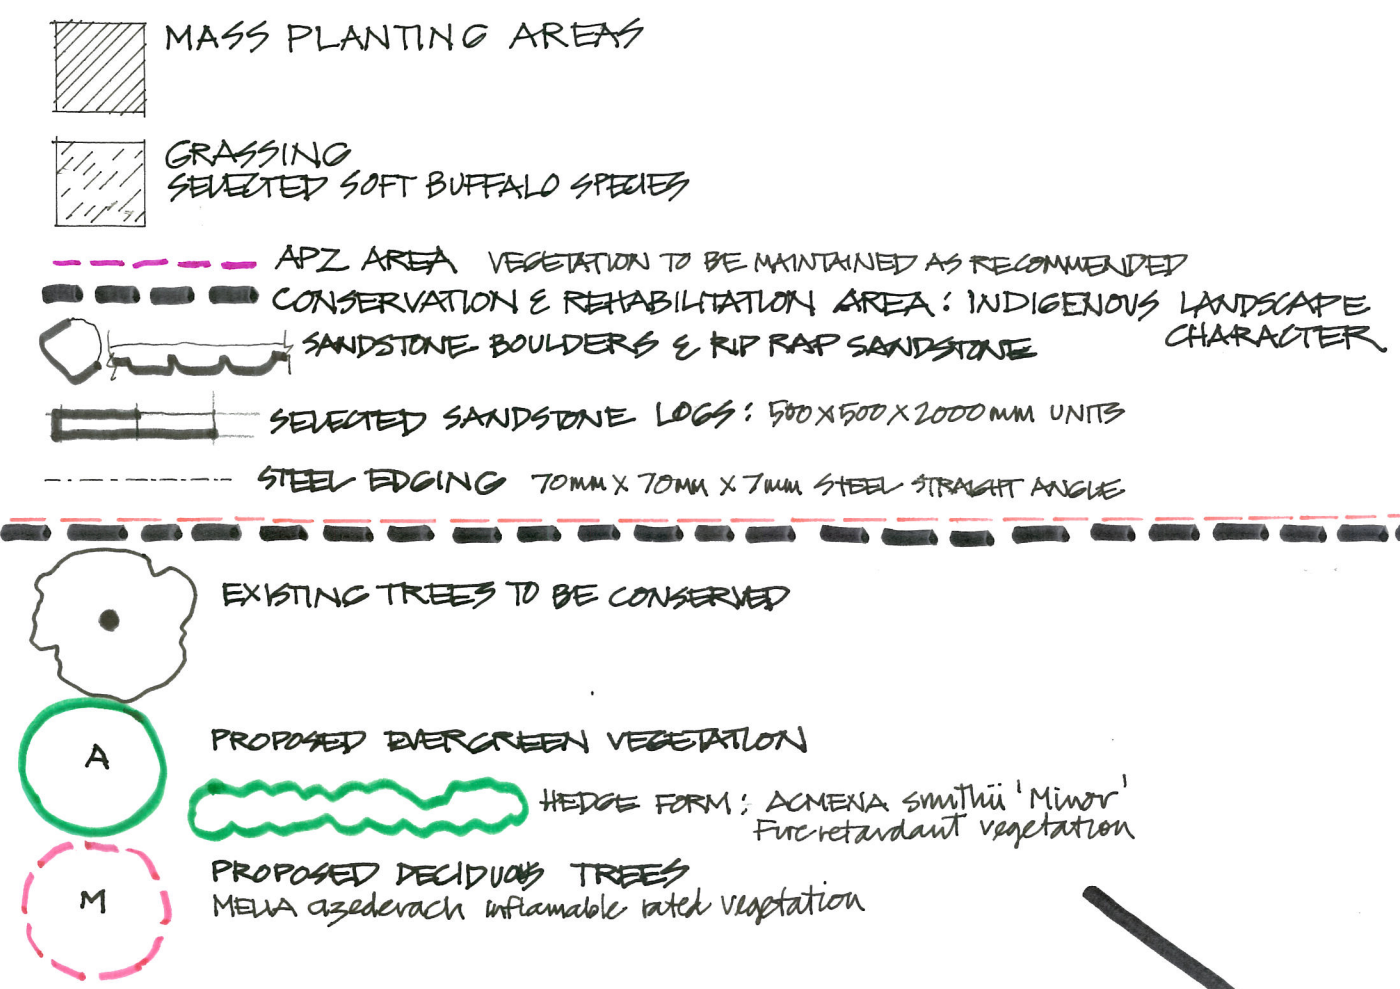 MASS PLANTING AREAS
GRASSING
SELECTED SOFT BUFFALO SPECIES
APZ AREA VEGETATION TO BE MAINTAINED AS RECOMMENDED
CONSERVATION & REHABILITATION AREA: INDIGENOUS LANDSCAPE
CHARACTER
SANDSTONE BOULDERS & RIP RAP SANDSTONE
SELECTED SANDSTONE LOGS: 500X500X2000mm UNITS
STEEL EDGING 70mm X 70mm X 7mm STEEL STRAIGHT ANGLE
EXISTING TREES TO BE CONSERVED
A
PROPOSED EVERGREEN VEGETATION
HEDGE FORM: ACMENA smithii 'Minor'
Fire retardant vegetation
M
PROPOSED DECIDUOUS TREES
MELIA azederach inflamable rated vegetation